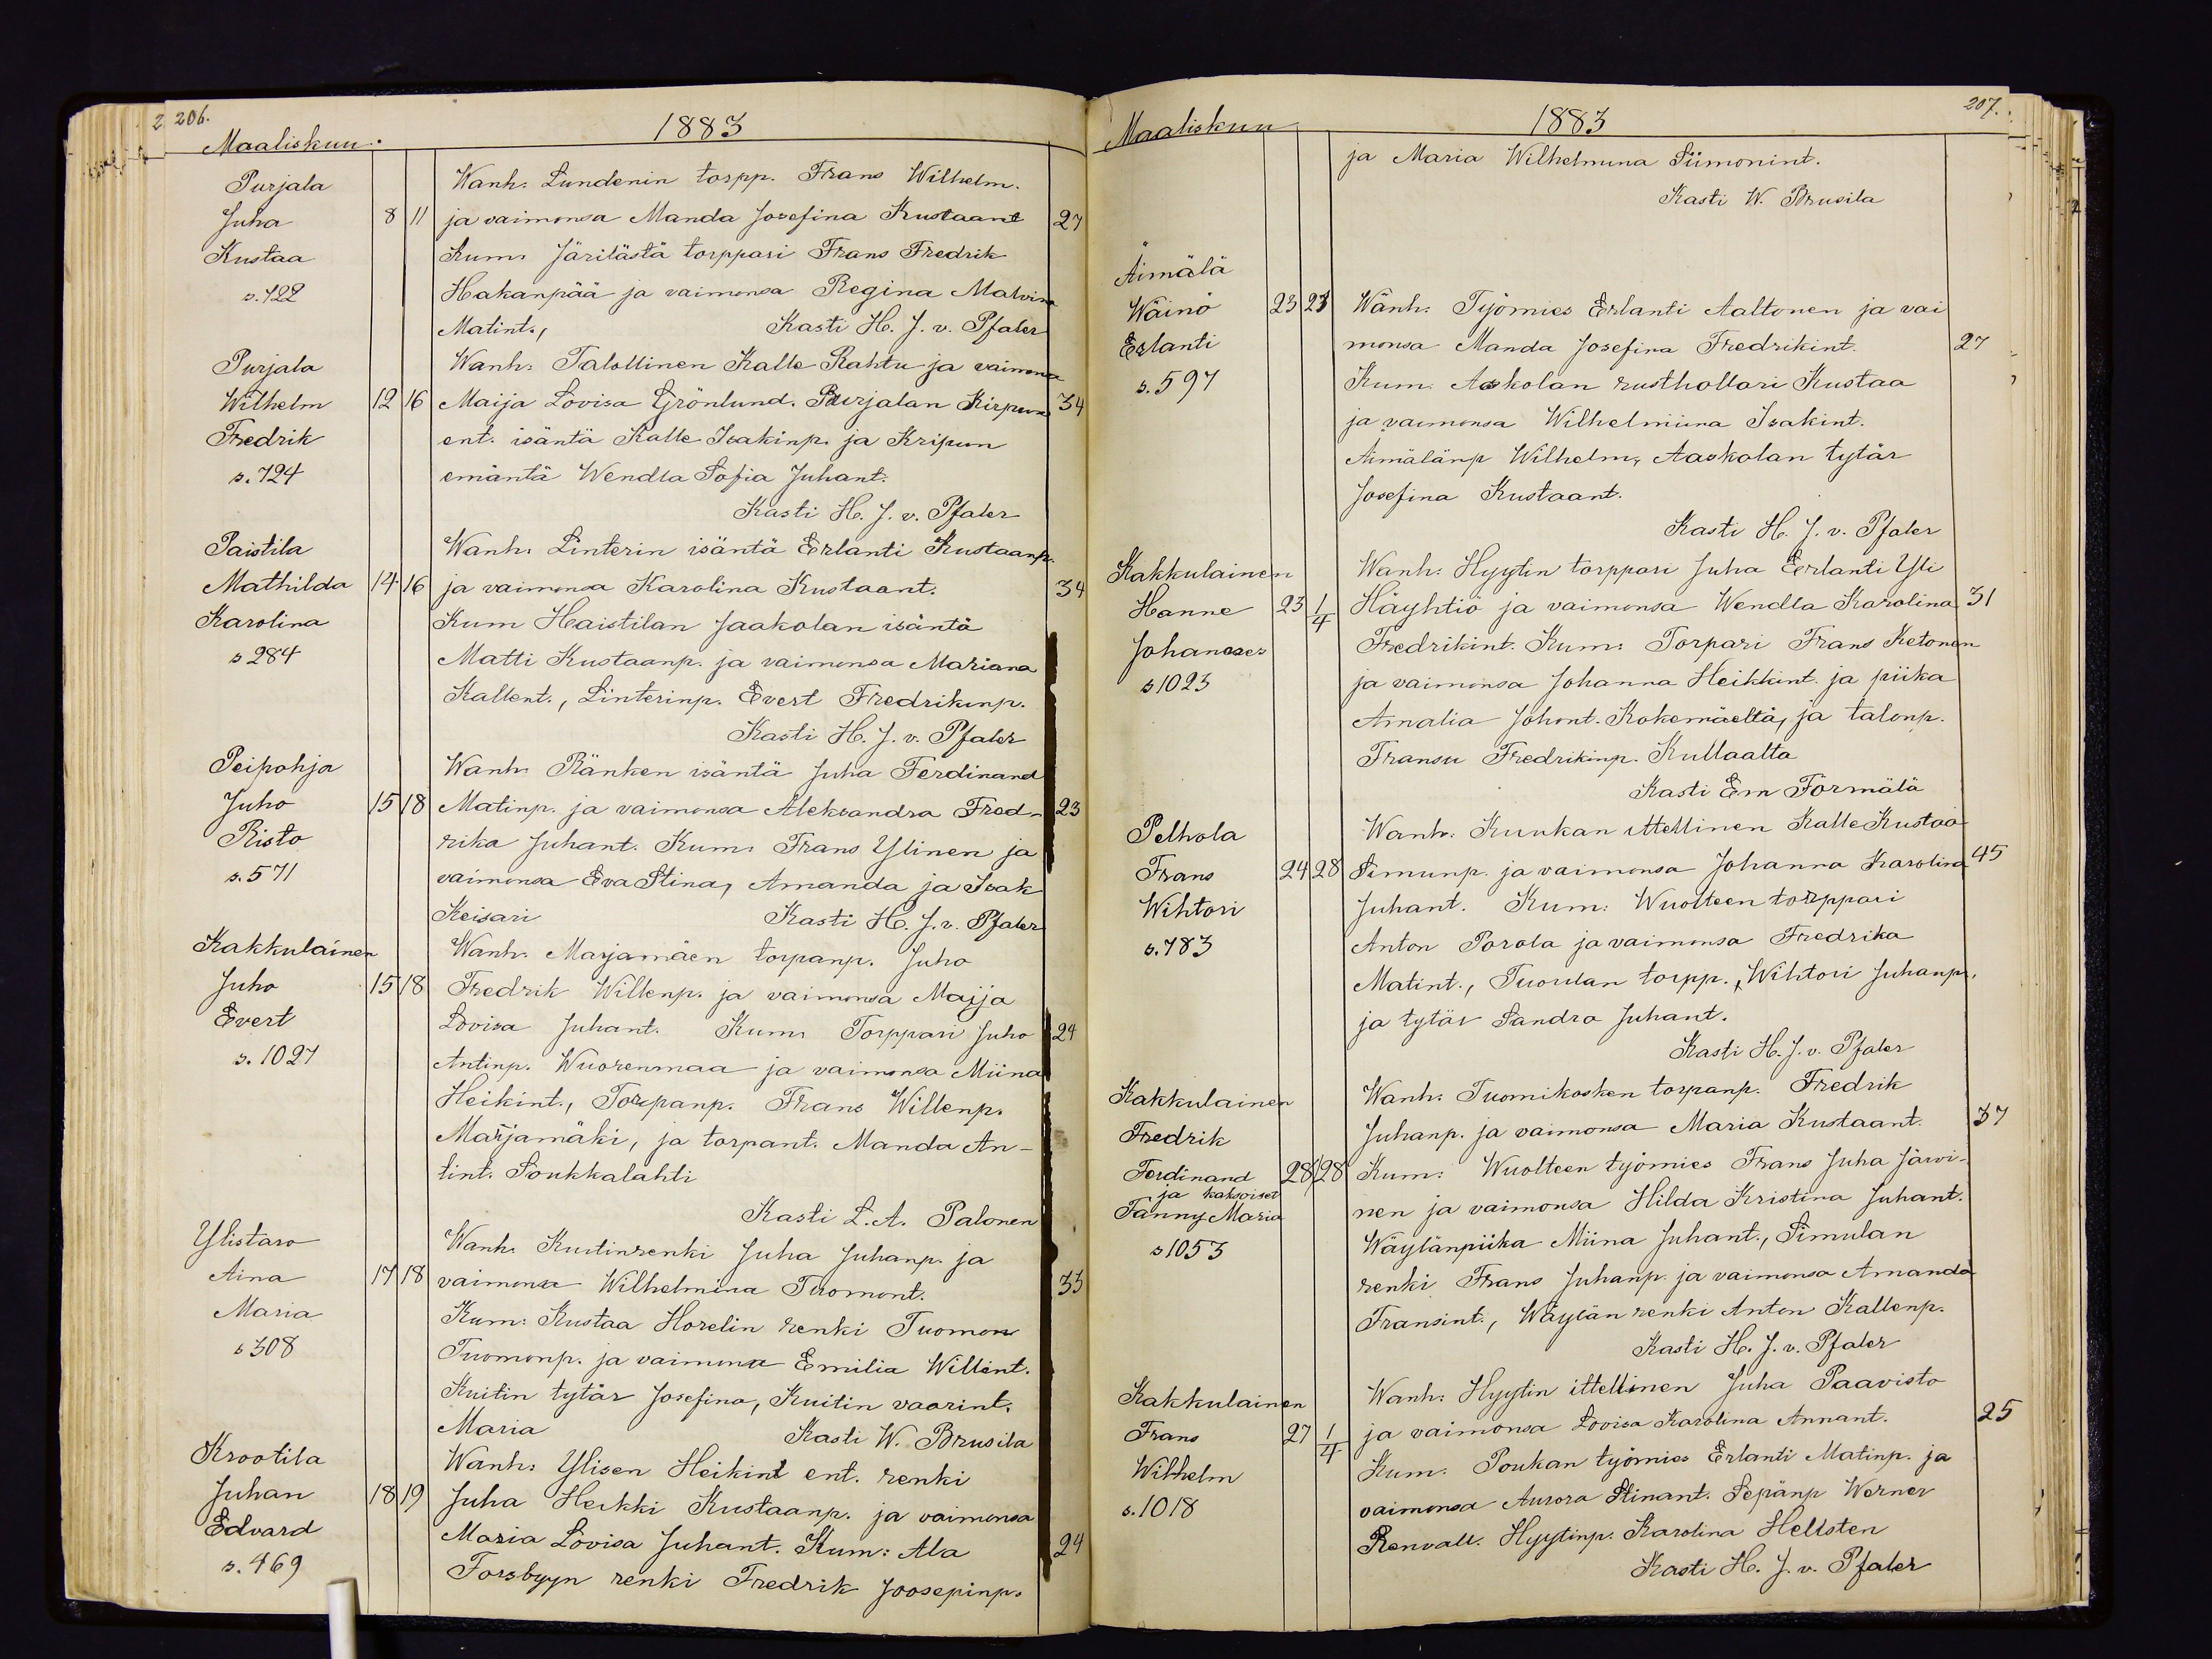 206.
1883
Maaliskuu.
Purjala Wanh. Lundenin torpp. Frans Wilhelm.
Juha 8 11 ja vaimonsa Manda Josefina Kustaant 27
Kustaa Kum. Järilästä torppari Frans Fredrik
s. 722 Hakanpää ja vaimonsa Regina Malvina
Matint., Kasti H. J. v. Pfaler
Purjala Wanh. Talollinen Kalle Rahtu ja vaimonsa
Wilhelm 12 16 Maija Lovisa Grönlund. Purjalan Kirpun 34
Fredrik ent. isäntä Kalle Isakinp. ja Kripun
s. 724 emäntä Wendla Sofia Juhant.
Kasti H. J. v. Pfaler
Paistila Wanh. Linterin isäntä Erlanti Kustaanp.
Mathilda 14 16 ja vaimonsa Karolina Kustaant. 34
Karolina Kum Haistilan Jaakolan isäntä
s 284 Matti Kustaanp. ja vaimonsa Mariana
Kallent., Linterinp. Evert Fredrikinp.
Kasti H. J. v. Pfaler
Peipohja Wanh. Ränken isäntä Juha Ferdinand
Juho 15 18 Matinp. ja vaimonsa Aleksandra Fred- 23
Risto rika Juhant. Kum. Frans Ylinen ja
s. 571 vaimonsa Eva Stina, Amanda ja Isak
Keisari Kasti H. J. v. Pfaler
Kakkulainen Wanh. Marjamäen torpanp. Juho
Juho 15 18 Fredrik Willenp. ja vaimonsa Maija
Evert Lovisa Juhant. Kum. Torppari Juho 24
s. 1027 Antinp. Wuorenmaa ja vaimonsa Miina
Heikint., Torpanp. Frans Willenp.
Marjamäki, ja torpant. Manda An-
tint. Soukkalahti
Kasti L. A. Palonen
Ylistaro Wanh. Kuitinrenki Juha Juhanp. ja
Aina 17 18 vaimonsa Wilhelmina Tuomont. 33
Maria Kum: Kustaa Horelin renki Tuomon
s 308 Tuomonp. ja vaimonsa Emilia Willent.
Kuitin tytär Josefina, Kuitin vaarint.
Maria Kasti W. Brusila
Krootila Wanh. Ylisen Heikint ent. renki
Juhan 18 19 Juha Heikki Kustaanp. ja vaimonsa
Edvard Maria Lovisa Juhant. Kum: Ala 24
s. 469 Forsbyyn renki Fredrik Joosepinp.
207.
Maaliskuu 1883
ja Maria Wilhelmina Siimonint.
Kasti W. Brusila
Äimälä
Wäinö 23 23 Wanh. Työmies Erlanti Aaltonen ja vai
Erlanti monsa Manda Josefina Fredrikint. 27
s. 597 Kum. Aaskolan rusthollari Kustaa
ja vaimonsa Wilhelmiina Isakint.
Äimälänp Wilhelm, Aaskolan tytär
Josefina Kustaant.
Kasti H. J. v. Pfaler
Kakkulainen Wanh. Hyytin torppari Juha Erlanti Yli
Hanne 23 1/4 Häyhtiö ja vaimonsa Wendla Karolina 31
Johannes Fredrikint. Kum: Torpari Frans Ketonen
s 1023 ja vaimonsa Johanna Heikkint. ja piika
Amalia Johont. Kokemäeltä, ja talonp.
Fransu Fredrikinp. Kullaalta
Kasti Em Törmälä
Pelhola Wanh. Kuukan ittellinen Kalle Kustaa
Frans 24 28 Simunp. ja vaimonsa Johanna Karolina 45
Wihtori Juhant. Kum: Wuolteen torppari
s. 783 Anton Porola ja vaimonsa Fredrika
Matint., Tuorulan torpp., Wihtori Juhanp.
ja tytär Sandra Juhant.
Kasti H. J. v. Pfaler
Kakkulainen Wanh. Tuomikosken torpanp. Fredrik
Fredrik Juhanp. ja vaimonsa Maria Kustaant. 37
Ferdinand 28 28 Kum: Wuolteen työmies Frans Juha Järvi-
ja kaksoiset
Fanny Maria nen ja vaimonsa Hilda Kristina Juhant.
s 1053 Wäylänpiika Miina Juhant., Simulan
renki Frans Juhanp. ja vaimonsa Amanda
Fransint., Wäylän renki Anton Kallenp.
Kasti H. J. v. Pfaler
Kakkulainen Wanh. Hyytin ittellinen Juha Paavisto
Frans 27 1/4 ja vaimonsa Lovisa Karolina Annant. 25
Wilhelm Kum. Poukan työmies Erlanti Matinp. ja
s. 1018 vaimonsa Aurora Stinant. Sepänp Werner
Renvall. Hyytinp. Karolina Hellsten
Kasti H. J. v. Pfaler